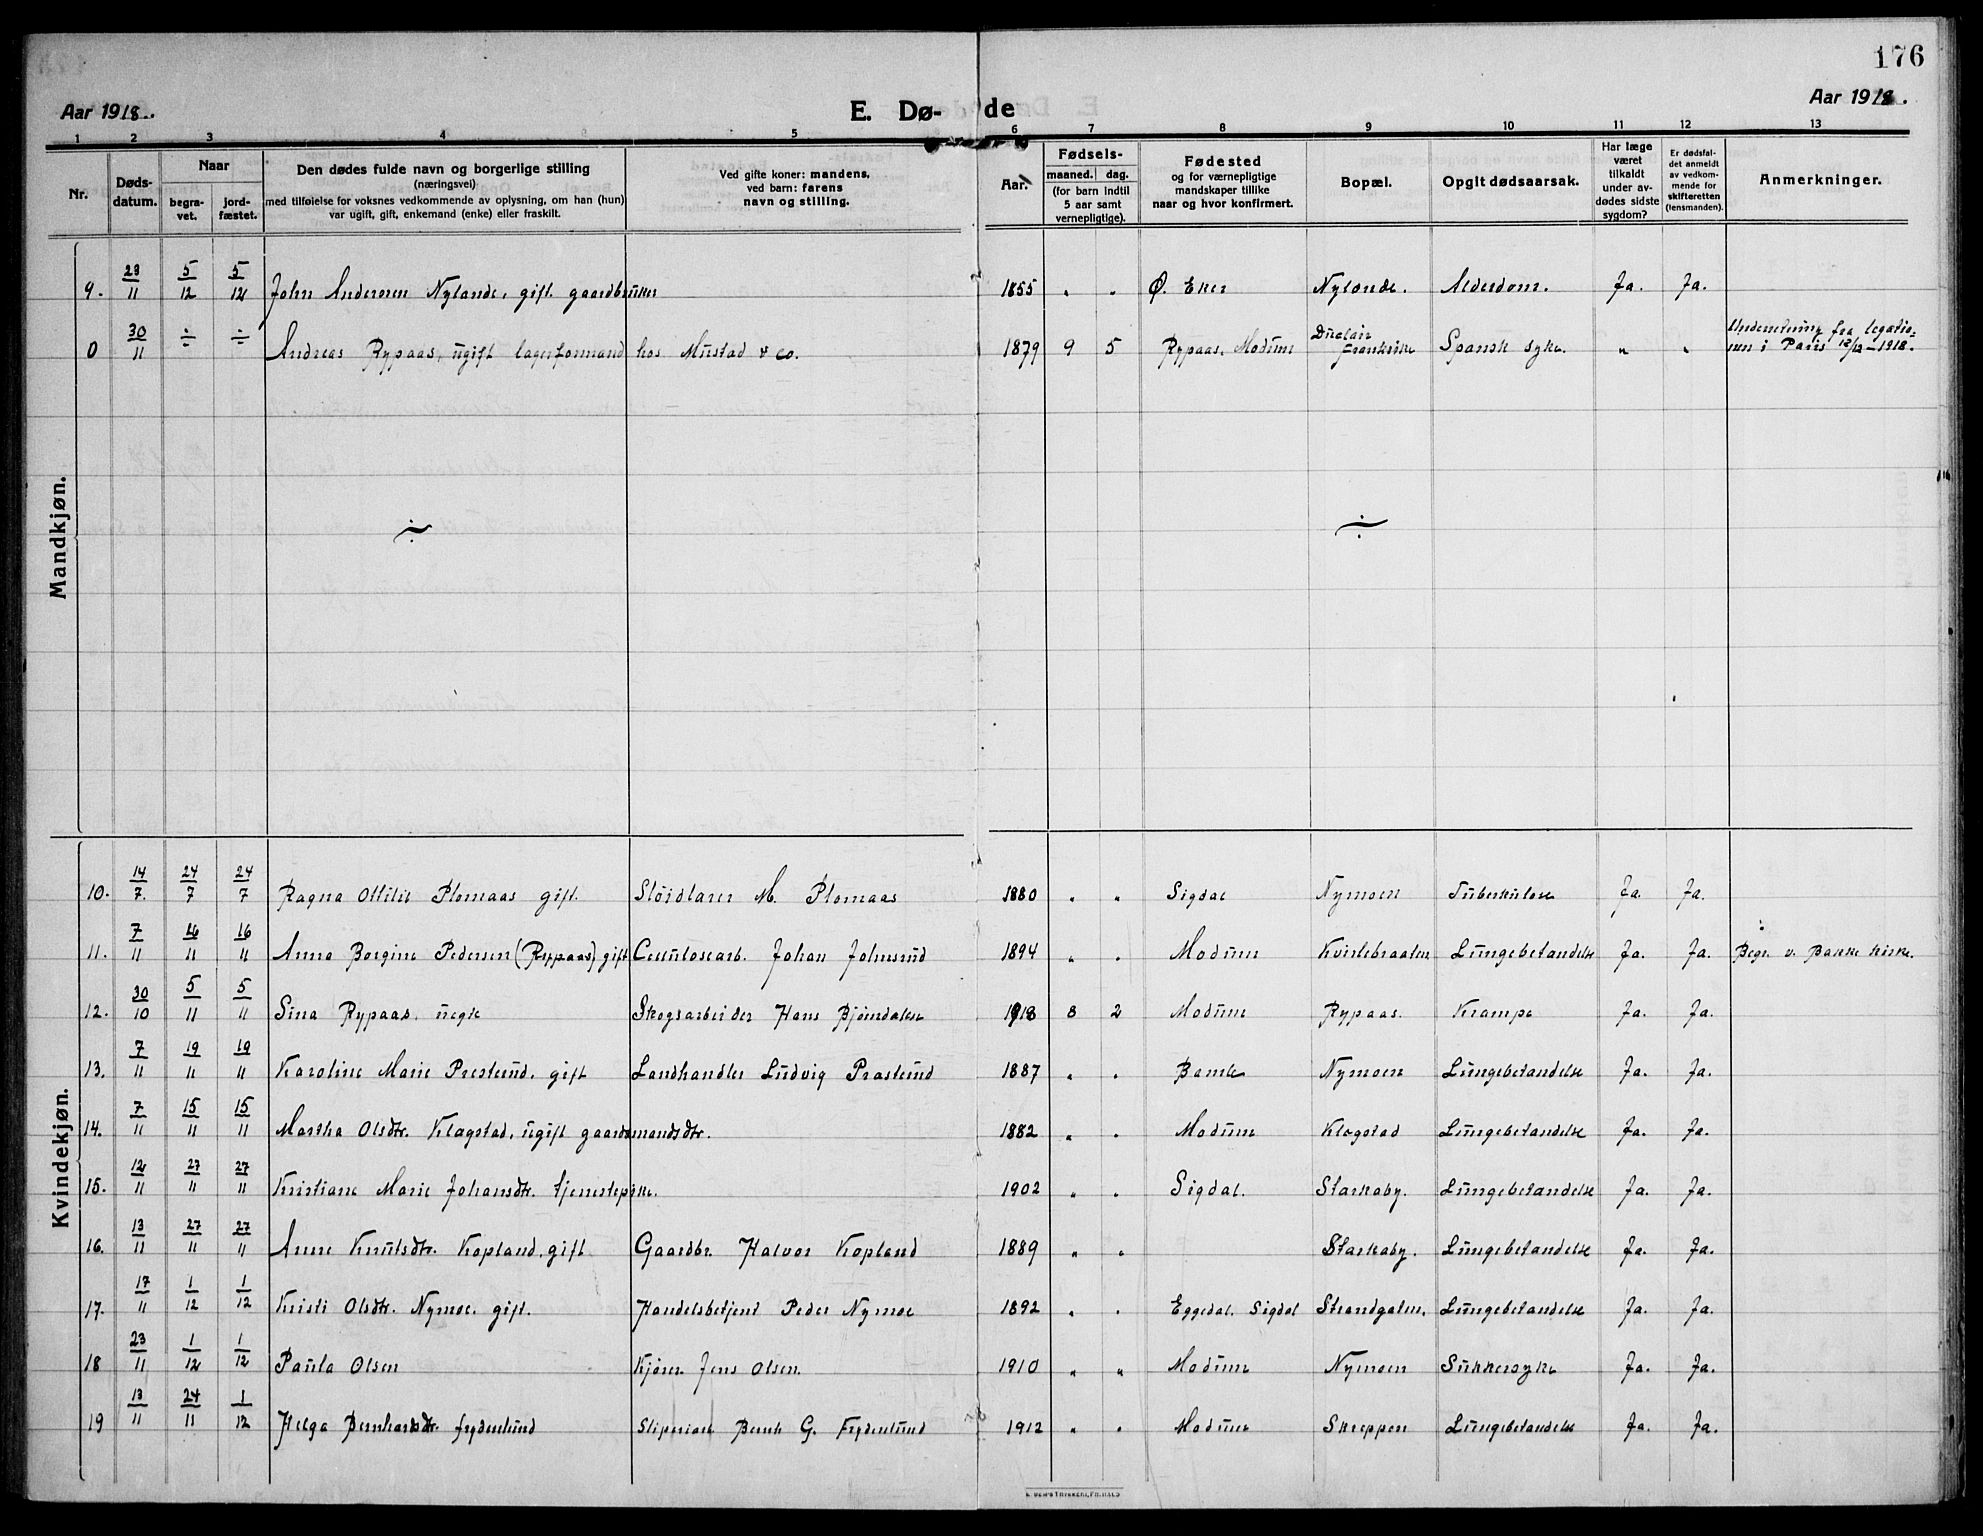 176
Aar 1918.
E. Dø-
de
Aar 1918.
1 2 3 4 5 6 7 8 9 10 11 12 13
Nr.
Døds-
datum.
Naar
begra-
vet.
jord-
fæstet.
Den dødes fulde navn og borgerlige stilling
(næringsvei)
med tilføielse for voksnes vedkommende av oplysning, om han (hun)
var ugift, gift, enkemand (enke) eller fraskilt.
Ved gifte koner: mandens,
ved barn: farens
navn og stilling.
Aar.
Fødsels-
maaned. dag.
(for barn indtil
5 aar samt
vernepligtige).
Fødested
og for værnepligtige
mandskaper tillike
naar og hvor konfirmert.
Bopæl.
Opgit dødsaarsak.
Har læge
været
tilkaldt
under av-
dødes sidste
sygdom?
Er dødsfal-
det anmeldt
av vedkom-
mende for
skifteretten
(lensmanden).
Anmerkninger.
Mandkjøn.
9. 23/11 5/12 5/12 John Andersen Nylande, gift. gaardbruker 1855 " " Ø. Eker Nylande. Alderdom. Ja. Ja.
0 30/11 ÷ ÷ Andreas Rypaas, ugift lagerformand hos Mustad & co. 1879 9 5 Rypaas, Modum Duclair Frankrike Spansk syke. " " Underretning fra legatio-
nen i Paris 12/12-1918.
÷ ÷
Kvindekjøn.
10. 14/7 24/7 24/7 Ragna Ottilie Plomaas gift. Sløidlærer M. Plomaas 1880 " " Sigdal Nymoen Tuberkulose Ja. Ja.
11. 7/11 16/11 16/11 Anna Borgine Pedersen (Rypaas) gift Cellulosearb. Johan Johnsrud 1894 " " Modum Kvislebraaten Lungebetændelse Ja. Ja. Begr. v. Bakke kirke.
12. 30/10 5/11 5/11 Sina Rypaas, uegte Skogsarbeider Hans Bjøndalse 1918 8 2 Modum Rypaas. Krampe Ja. Ja.
13. 7/11 19/11 19/11 Karoline Marie Præstrud, gift Landhandler Ludvig Præstrud 1887 " " Bamle Nymoen Lungebetændelse Ja. Ja.
14. 7/11 15/11 15/11 Martha Olsdtr. Klagstad, ugift gaardmandsdtr. 1882 " " Modum Klogstad Lungebetændelse Ja. Ja.
15. 12/11 27/11 27/11 Kristiane Marie Johansdtr. tjenestepike. 1902 " " Sigdal. Starkaby. Lungebetændelse Ja. Ja.
16. 13/11 27/11 27/11 Anne Knutsdtr. Kopland, gift Gaardbr. Halvor Kopland 1889 " " Starkaby. Lungebetændelse Ja. Ja.
17. 17/11 1/12 1/12 Kristi Olsdtr. Nymoe. gift. Handelsbetjent Peder Nymoe 1892 " " Eggedal. Sigdal Strandgaten. Lungebetændelse Ja. Ja.
18 23/11 1/12 1/12 Paula Olsen Kjører Jens Olsen. 1910 " " Modum Nymoen Sukkersyke Ja. Ja.
19 13/11 24/11 1/12 Helga Bernhardsdtr. Frydenlund Sliperiarb. Bernh G. Frydenlund 1912 " " Modum Skreppen Lungebetændelse Ja. Ja.